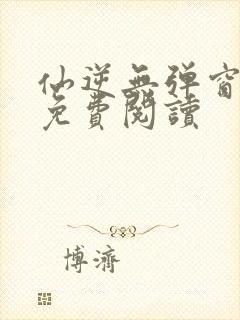 仙逆無彈窗
免費閱讀
博濟